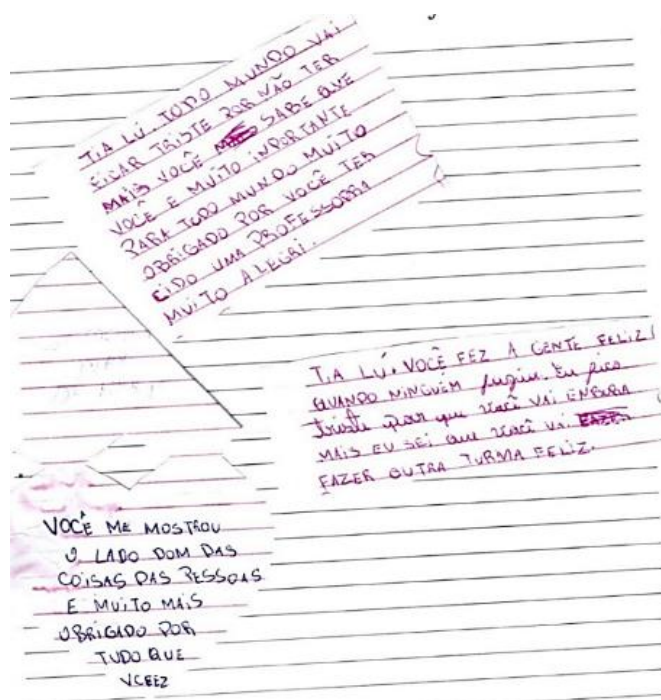 TIA LÚ. TODO MUNDO VAI
FICAR TRISTE POR NÃO TER
MAIS VOCÊ SABE QUE
VOCÊ E MUITO INPORTANTE
PARA TODO MUNDO MUITO
OBRIGADO POR VOCÊ TER
CIDO UMA PROFESSORA
MUITO ALEGRI.
TIA LÚ. VOCÊ FEZ A GENTE FELIZ
QUANDO NINGUÉM fugiu. Eu fico
triste por que você VAI ENBORA
MAIS EU SEI que você VAI
FAZER OUTRA TURMA FELIZ.
VOCÊ ME MOSTROU
O LADO DOM DAS
COISAS DAS PESSOAS
E MUITO MAIS
OBRIGADO POR
TUDO QUE